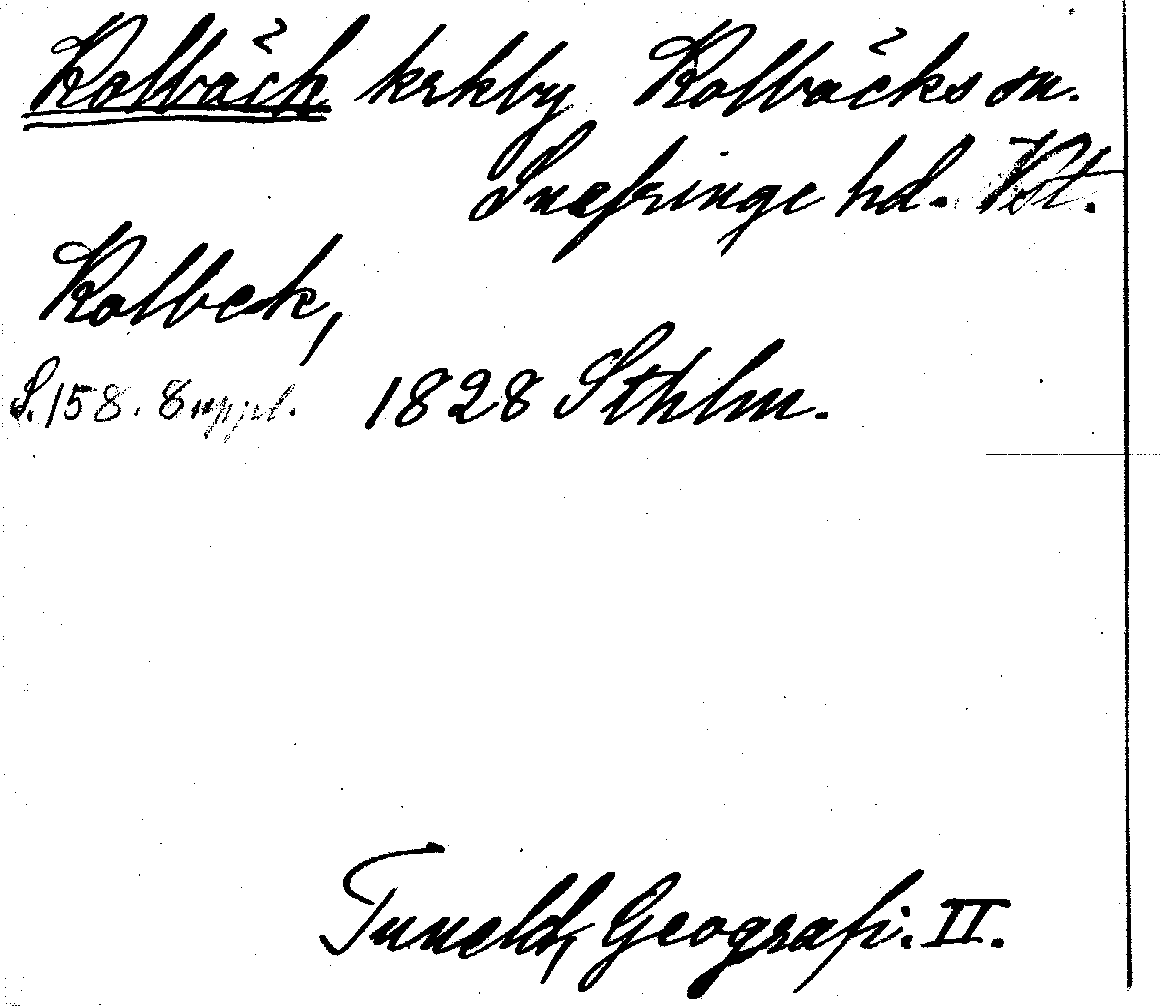 Kolbäck krkby Kolbäcks sn.
Snefringe hd. Vst.
Kolbek,
S. 158. Suppl. 1828 Sthlm.
Tuneld, Geografi. II.